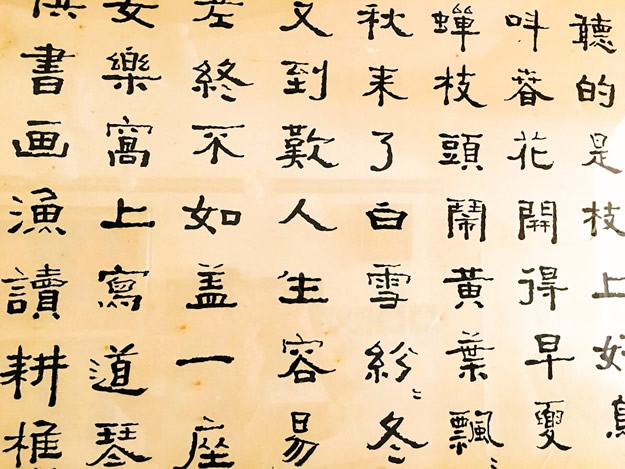 聽的是枝上好鳥
叫春花開得早夏
蟬枝頭鬧黃葉飄々
秋来了白雪紛々冬
又到歎人生容易
老終不如盖一座
安樂窩上寫道琴
棋書画漁讀耕樵